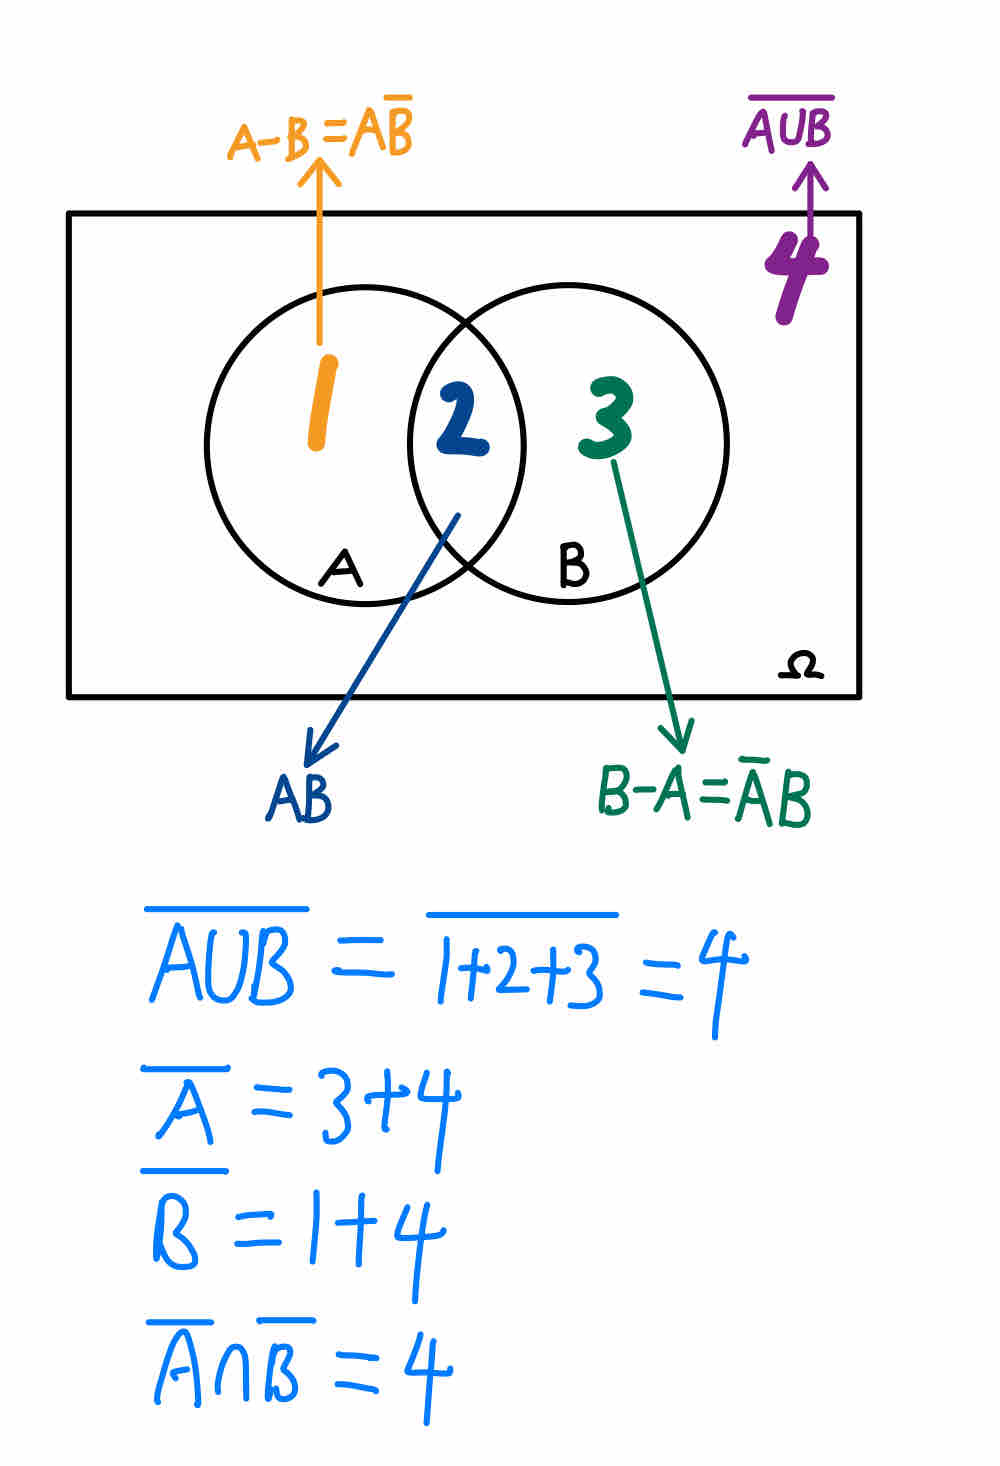 A-B=AB̅
A̅U̅B̅
4
1
2
3
A
B
Ω
AB
B-A=A̅B
A̅U̅B̅ = 1̅+̅2̅+̅3̅ = 4
A̅ = 3+4
B̅ = 1+4
A̅∩B̅ = 4